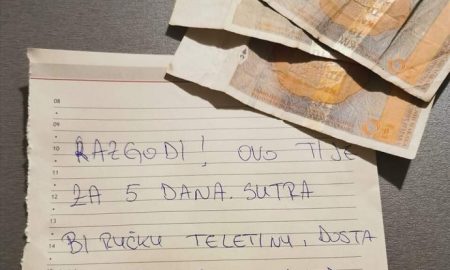 08
09
10 RAZGODI! OVO TI JE
11
12 ZA 5 DANA. SUTRA
13
14 BI RUČKU TELETINU, DOSTA